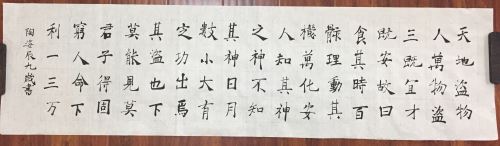 天地盗物
人萬物盗
三既宜才
既安故曰
食其時百
骸理動其
機萬化安
人知其神
之神不知
其神日月
數小大有
定功出焉
其盗也下
莫能見莫
君子得固
窮人命下
利一三万
陶姿辰九歲書